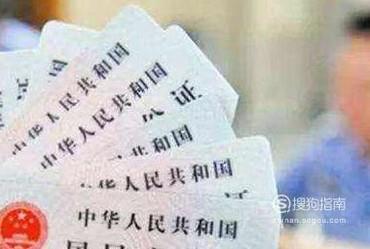 证
中华人民共和国
中华人民共和国
证
中华人民共和国
中华人民共和国
证
中华人民共和国
搜狗指南
zhinan.sogou.com